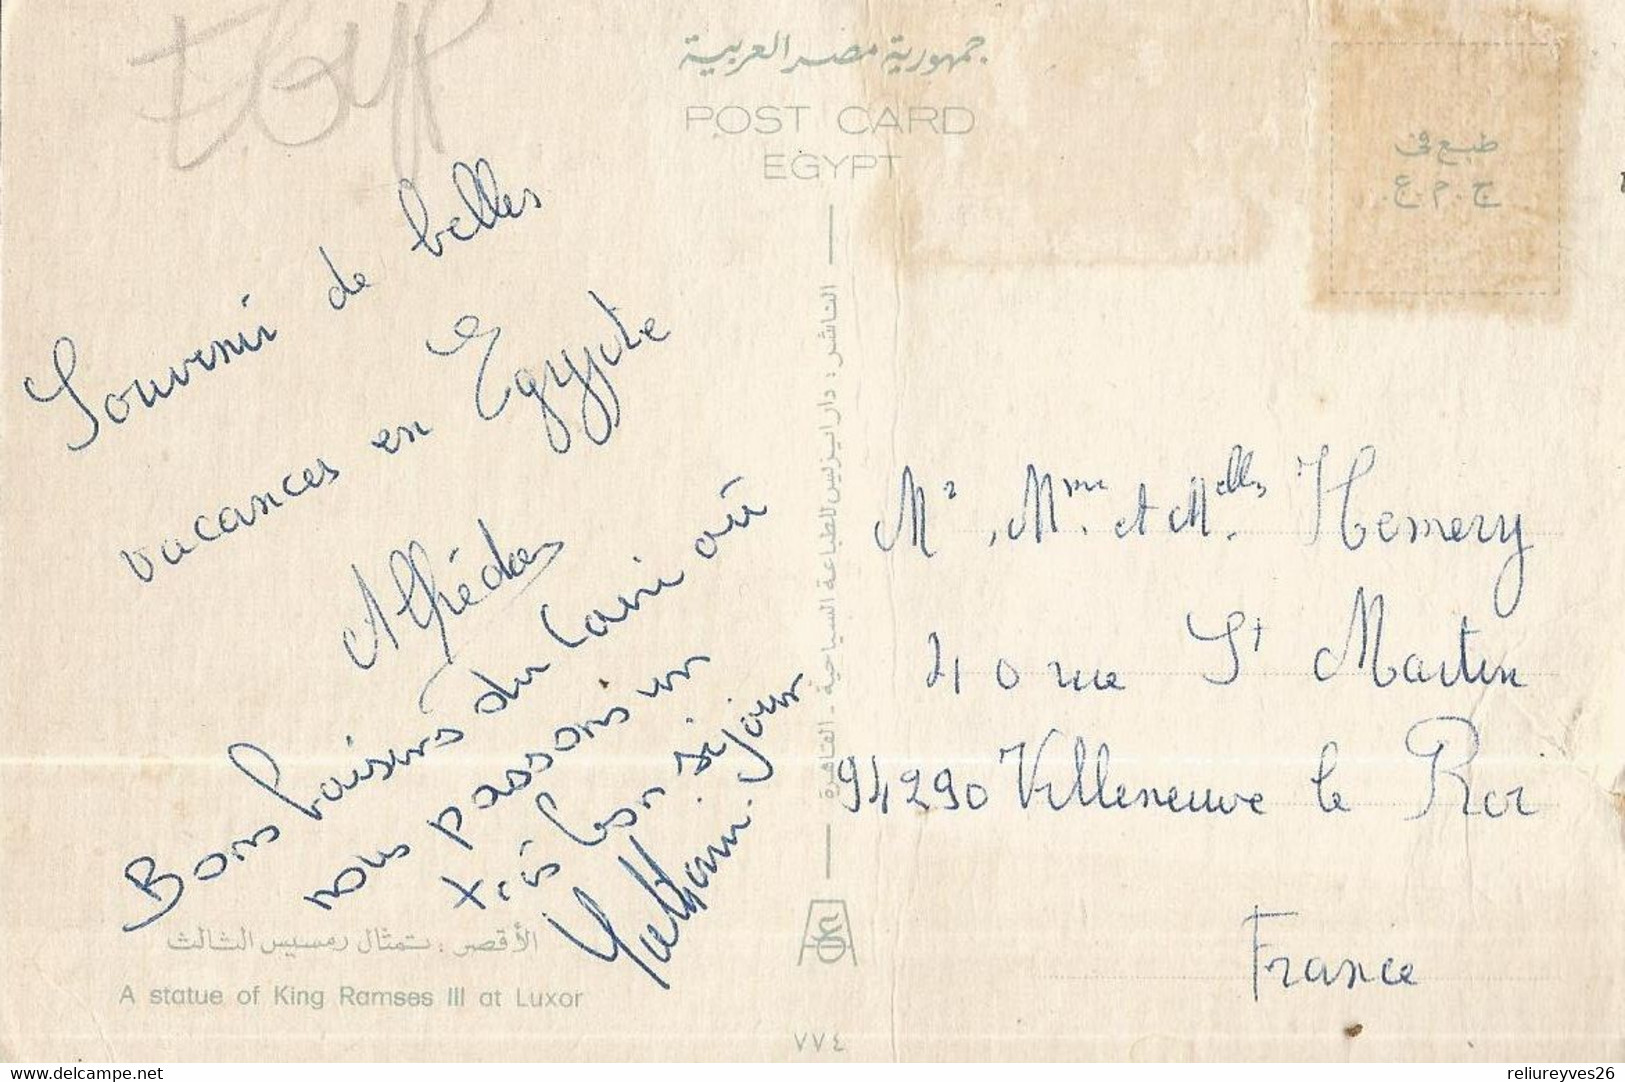 EGYP
جمهورية مصر العربية
POST CARD
EGYPT
طبع فى
ج.م.ع.
Souvenir de belles
vacances en Egypte
Bons baisers du Caire où
nous passons un
très bon séjour
الناشر : دار ايزيس للطباعة السياحية - القاهرة
Mr, Mme et Melles Hemery
40 rue St Martin
94290 Villeneuve le Roi
France
الأقصر : تمثال رمسيس الثالث
A statue of King Ramses III at Luxor
٧٧٤
delcampe.net
reliureyves26